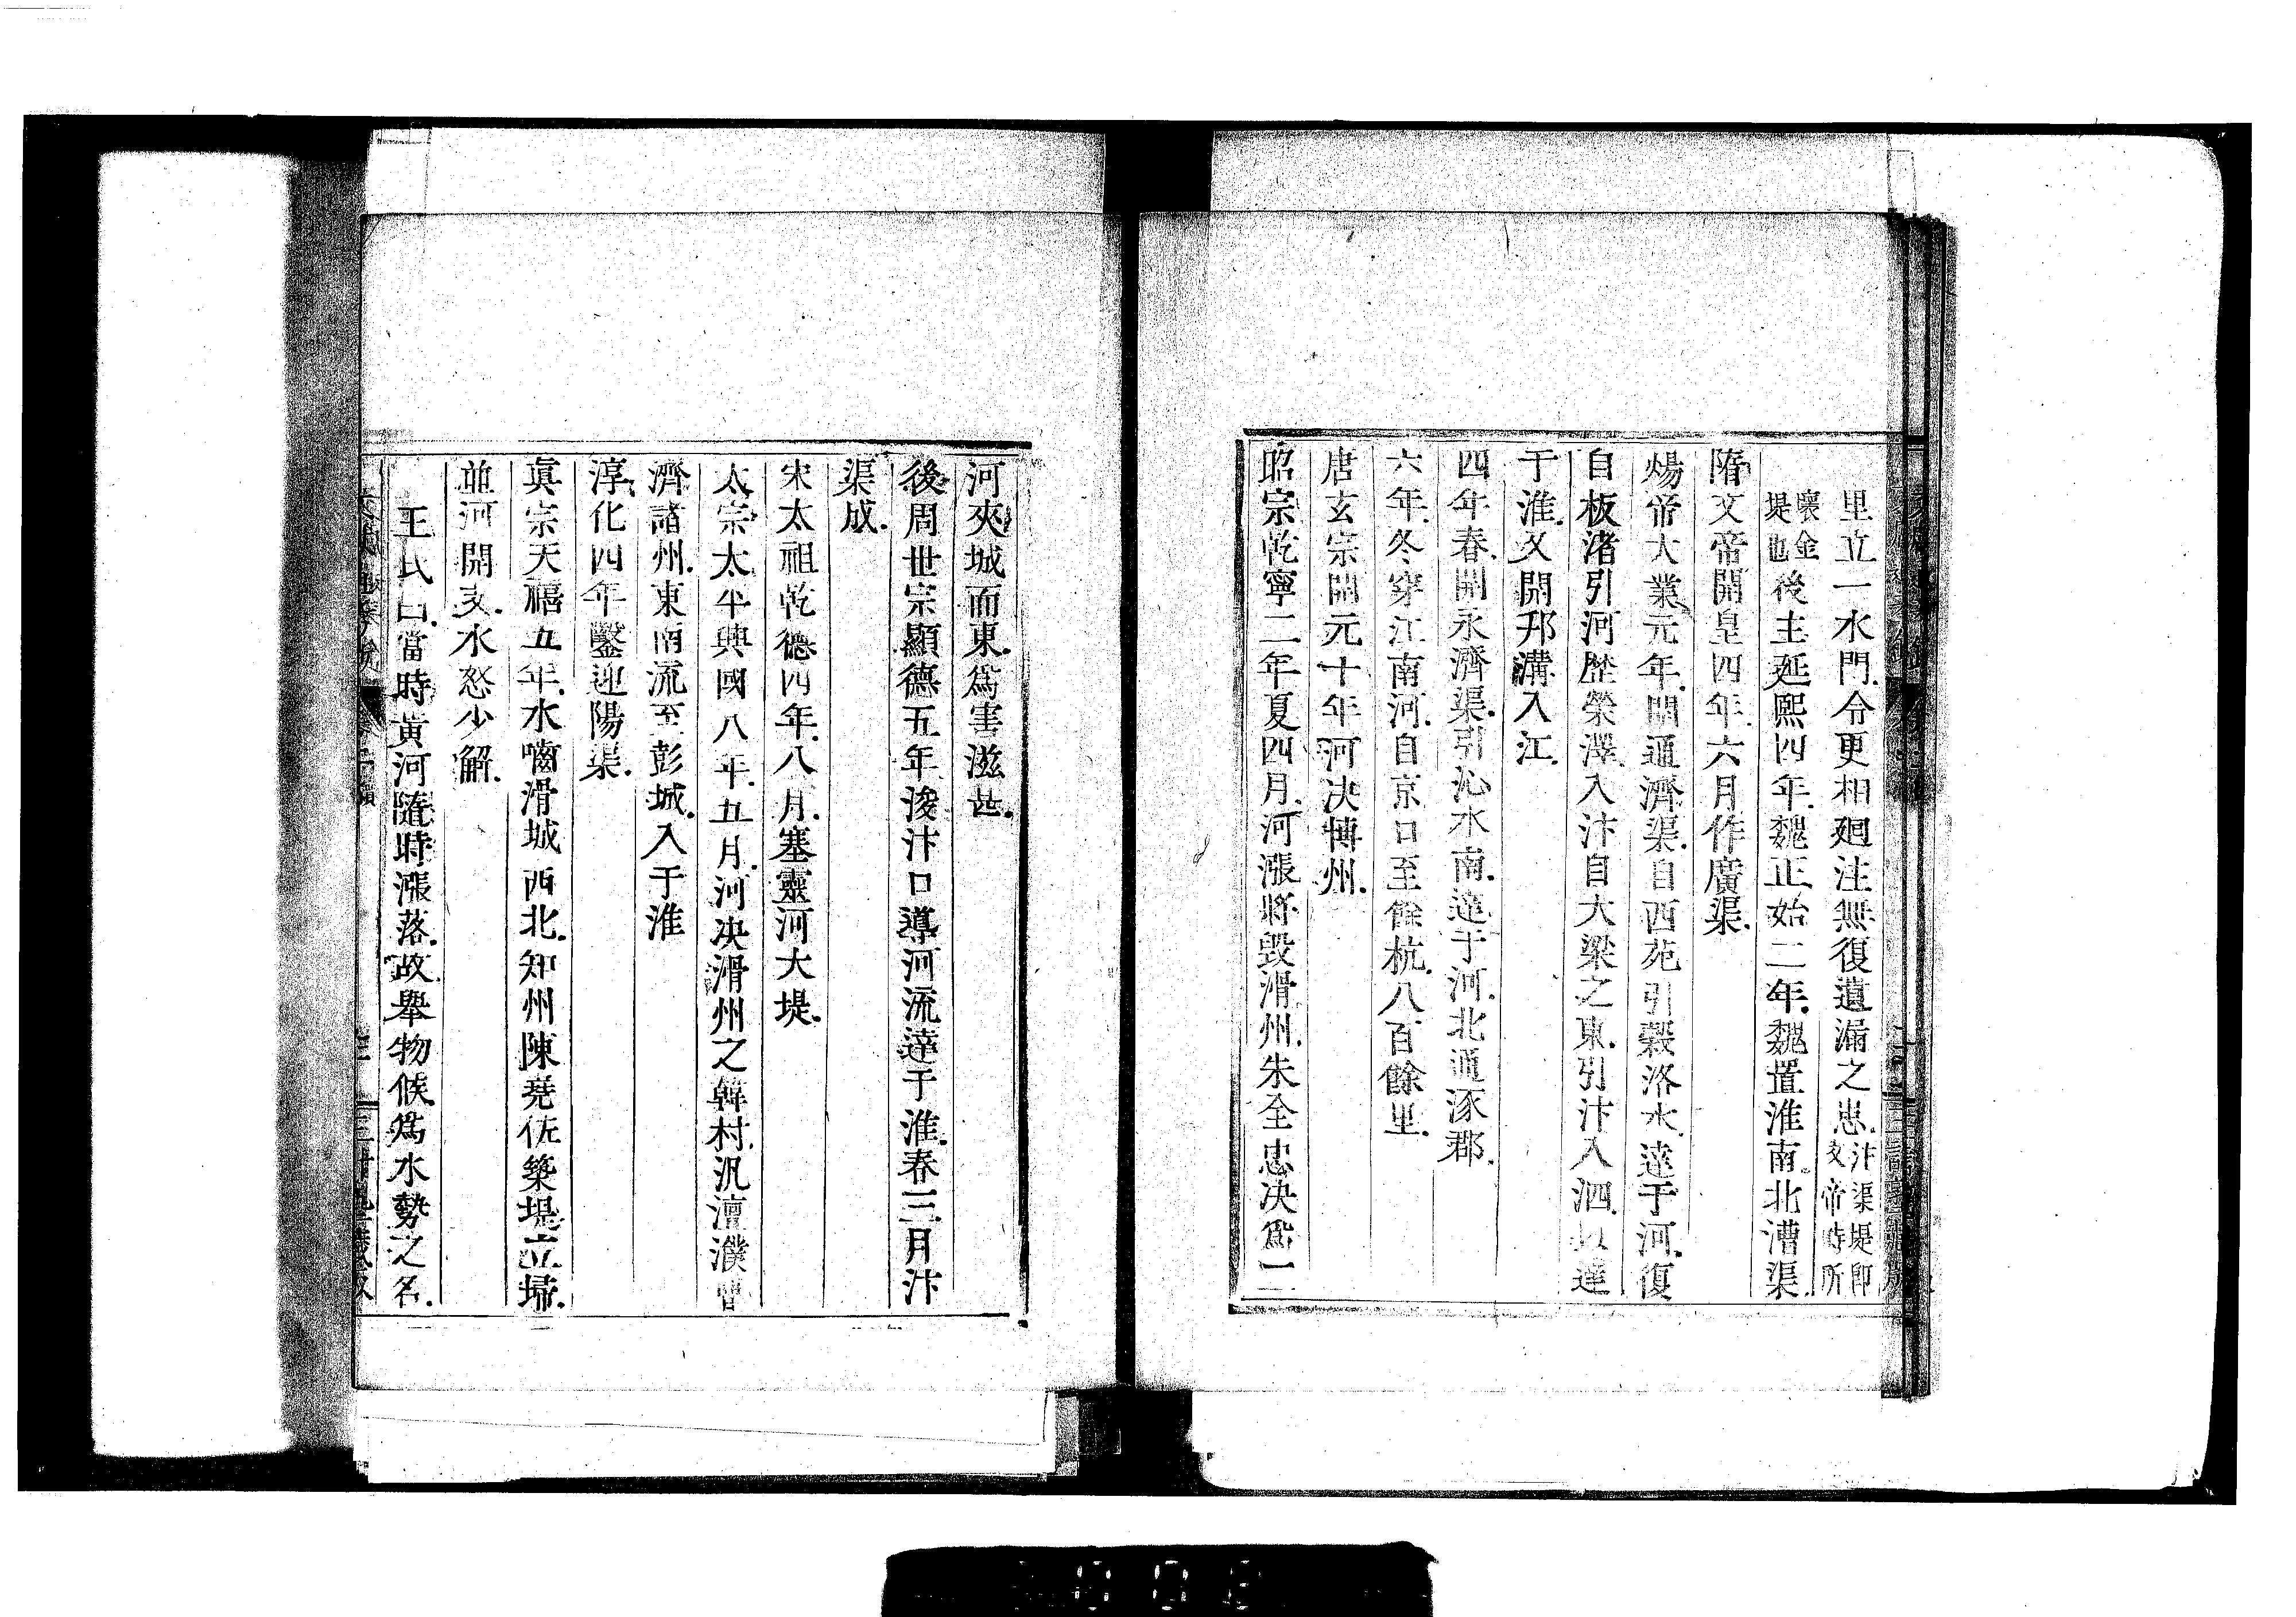 里立一水門令更相廻注無復遺漏之患汴渠堤卽文帝時所
壞金堤也後主延熙四年魏正始二年魏置淮南北漕渠
隋文帝開皇四年六月作廣渠
煬帝大業元年開通濟渠自西苑引穀洛水達于河復
自板渚引河歷滎澤入汴自大梁之東引汴入泗以達
于淮又開邗溝入江
四年春開永濟渠引沁水南達于河北通涿郡
六年冬穿江南河自京口至餘杭八百餘里
唐玄宗開元十年河决博州
昭宗乾寧二年夏四月河漲將毀滑州朱全忠决爲二
河夾城而東爲害滋甚
後周世宗顯德五年浚汴口導河流達于淮春三月汴
渠成
宋太祖乾德四年八月塞靈河大堤
太宗太平興國八年五月河决滑州之韓村汎澶濮曹
濟諸州東南流至彭城入于淮
淳化四年鑿迎陽渠
眞宗天禧五年水嚙滑城西北知州陳堯佐築堤立埽
並河開支水怒少解
王氏曰當時黃河隨時漲落故舉物候爲水勢之名